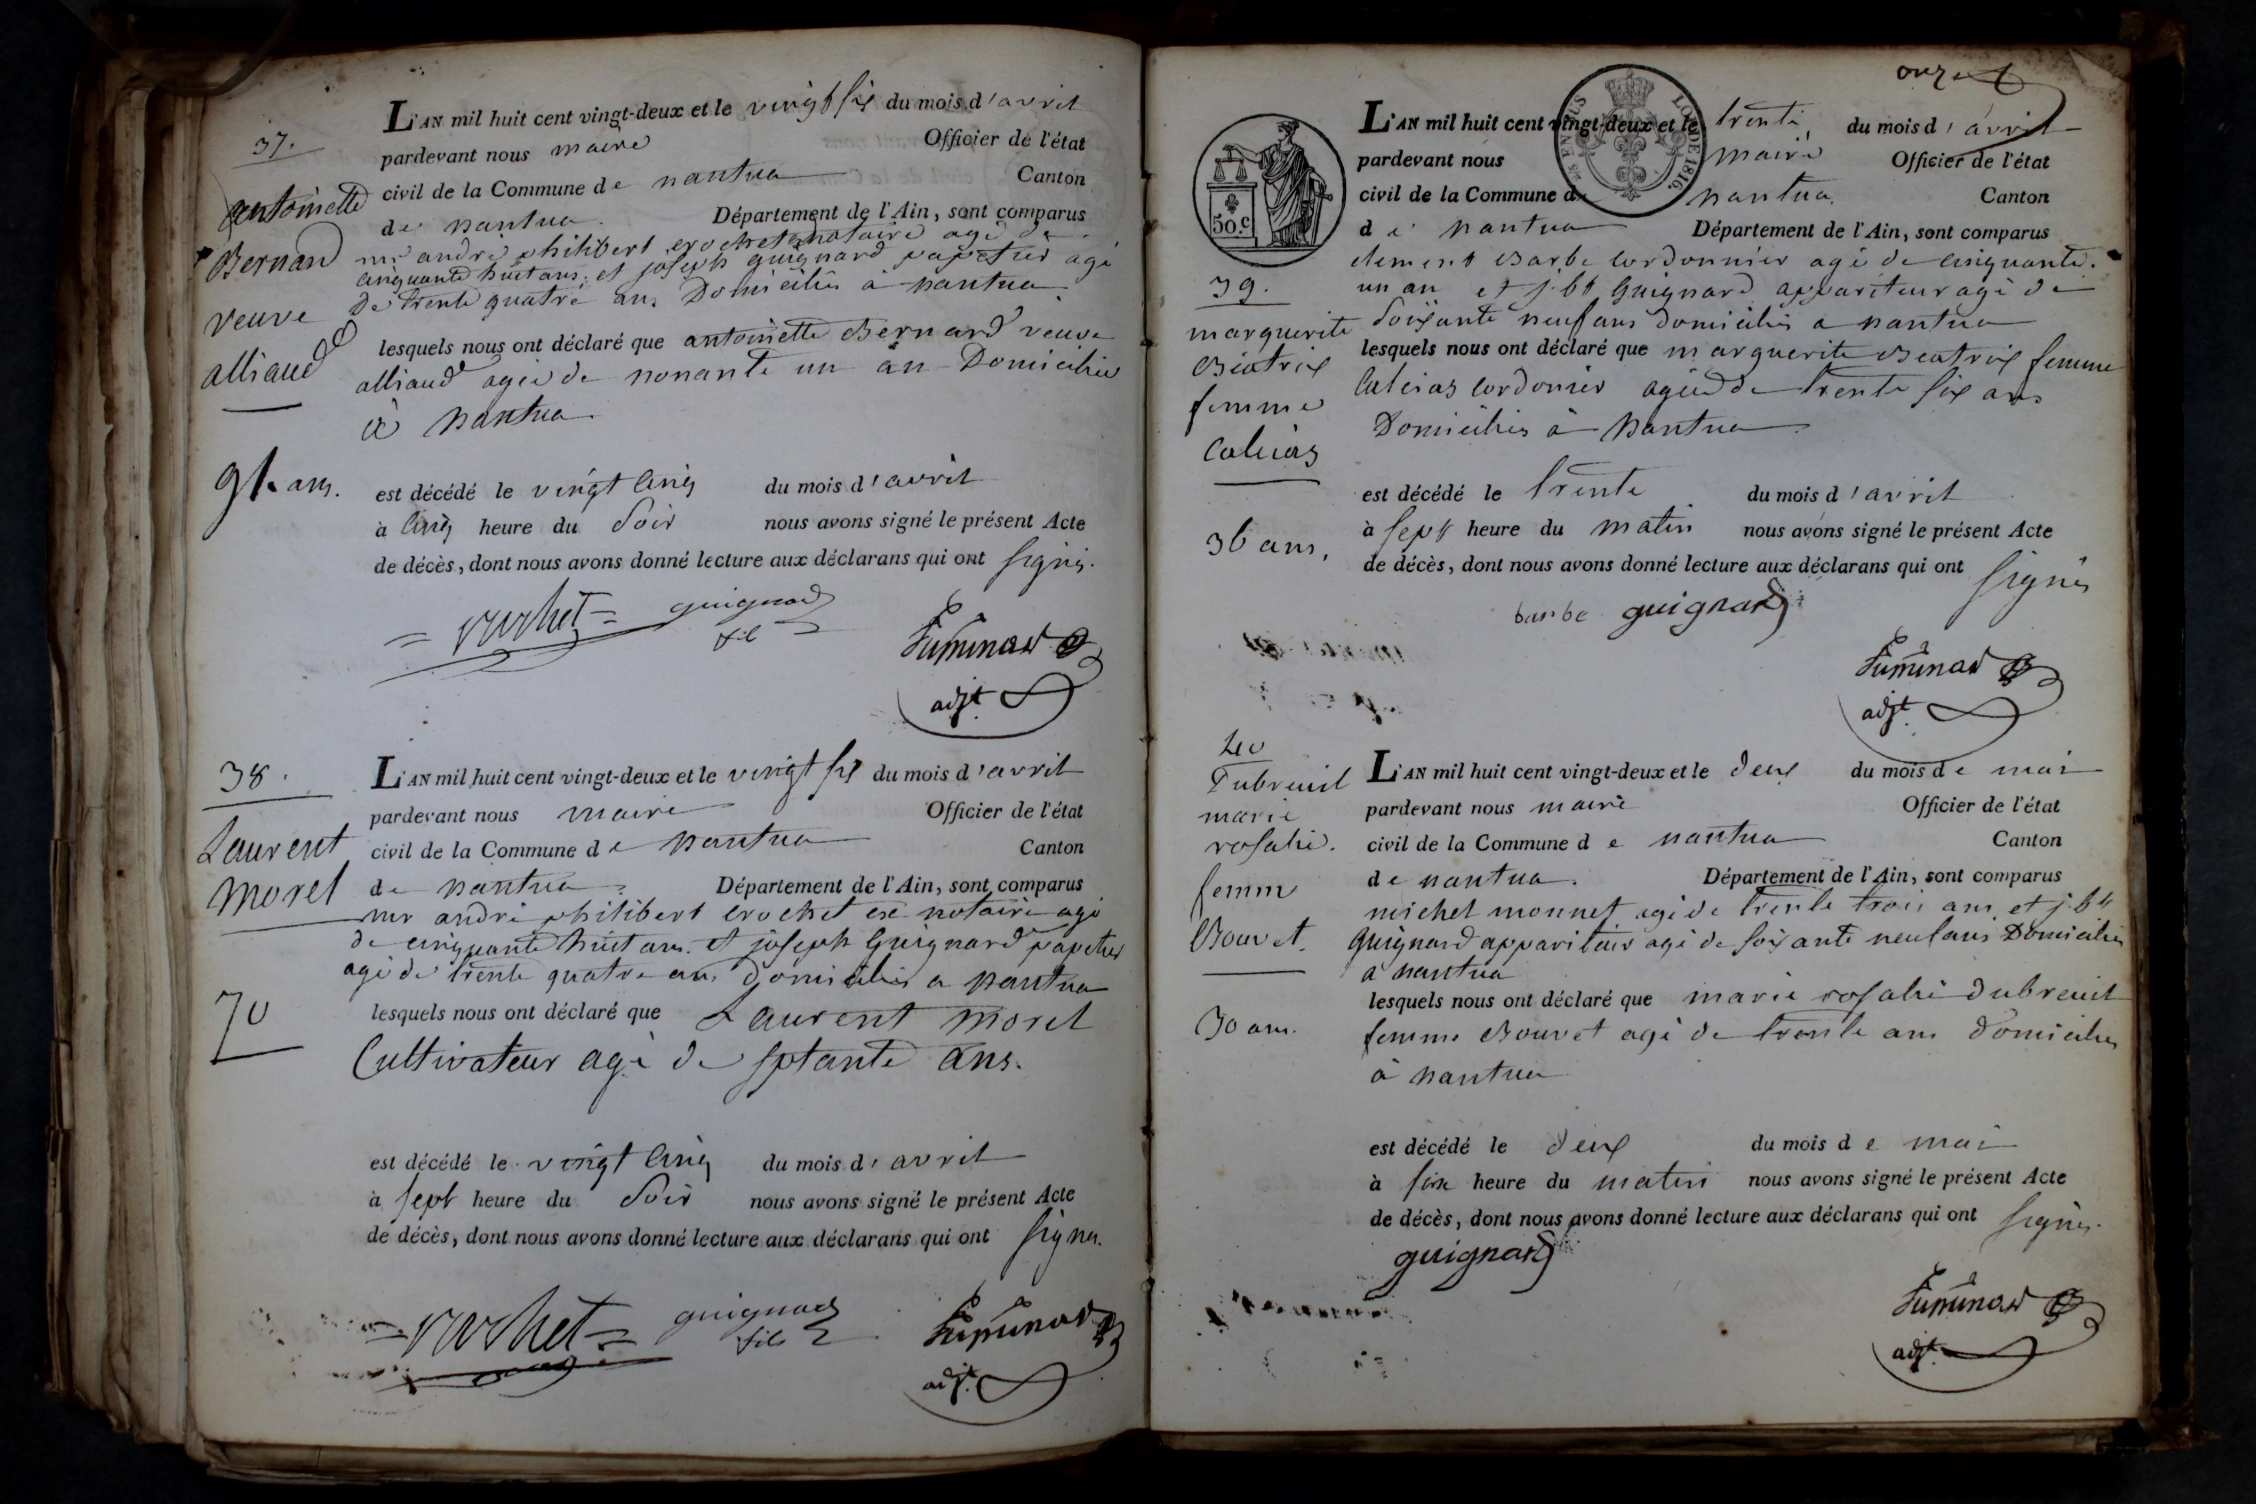 37.
antoinette
Bernard
veuve
alliaud
91 ans.
L'AN mil huit cent vingt-deux et le vingt six du mois d'avril
pardevant nous maire Officier de l'état
civil de la Commune de nantua Canton
de nantua Département de l'Ain, sont comparus
mr andré philibert crochet notaire agé de
cinquante huit ans, et joseph guignard papetier agé
de trente quatre ans Domiciliés à nantua
lesquels nous ont déclaré que antoinette Bernard veuve
alliaud agée de nonante un an Domiciliée
à nantua
est décédé le vingt cinq du mois d'avril
à cinq heure du soir nous avons signé le présent Acte
de décès, dont nous avons donné lecture aux déclarans qui ont signés.
crochet guignard
fils
adjt.
38.
Laurent
morel
70
L'AN mil huit cent vingt-deux et le vingt six du mois d'avril
pardevant nous maire Officier de l'état
civil de la Commune de nantua Canton
de nantua Département de l'Ain, sont comparus
mr andré philibert crochet ex notaire agé
de cinquante huit ans et joseph Guignard papetier
agé de trente quatre ans domiciliés a nantua
lesquels nous ont déclaré que Laurent morel
Cultivateur agé de septante ans.
est décédé le vingt cinq du mois d'avril
à sept heure du soir nous avons signé le présent Acte
de décès, dont nous avons donné lecture aux déclarans qui ont signés.
crochet guignard
fils
adjt.
onze
50.c
LOI DE 1816.
39.
marguerite
Béatrix
femme
Caleias
36 ans.
L'AN mil huit cent vingt-deux et le trente du mois d'avril
pardevant nous maire Officier de l'état
civil de la Commune de nantua Canton
de nantua Département de l'Ain, sont comparus
clement Barbe cordonnier agé de cinquante.
un an et j. btt Guignard appariteur agé de
soixante neuf ans domiciliés a nantua
lesquels nous ont déclaré que marguerite Beatrix femme
Caleias cordonier agée de trente six ans
Domiciliés à nantua
est décédé le trente du mois d'avril
à sept heure du matin nous avons signé le présent Acte
de décès, dont nous avons donné lecture aux déclarans qui ont signés
barbe guignard
adjt.
40
Dubreuil
marie
rosalie.
femme
Bouvet.
30 ans.
L'AN mil huit cent vingt-deux et le deux du mois de mai
pardevant nous maire Officier de l'état
civil de la Commune de nantua Canton
de nantua. Département de l'Ain, sont comparus
michel monnet agé de trente trois ans et j. btt
Guignard appariteur agé de soixante neuf ans Domiciliés
a nantua
lesquels nous ont déclaré que marie rosalie dubreuil
femme Bouvet agé de trente ans domiciliés
à nantua
est décédé le deux du mois de mai
à six heure du matin nous avons signé le présent Acte
de décès, dont nous avons donné lecture aux déclarans qui ont signés.
guignard
adjt.